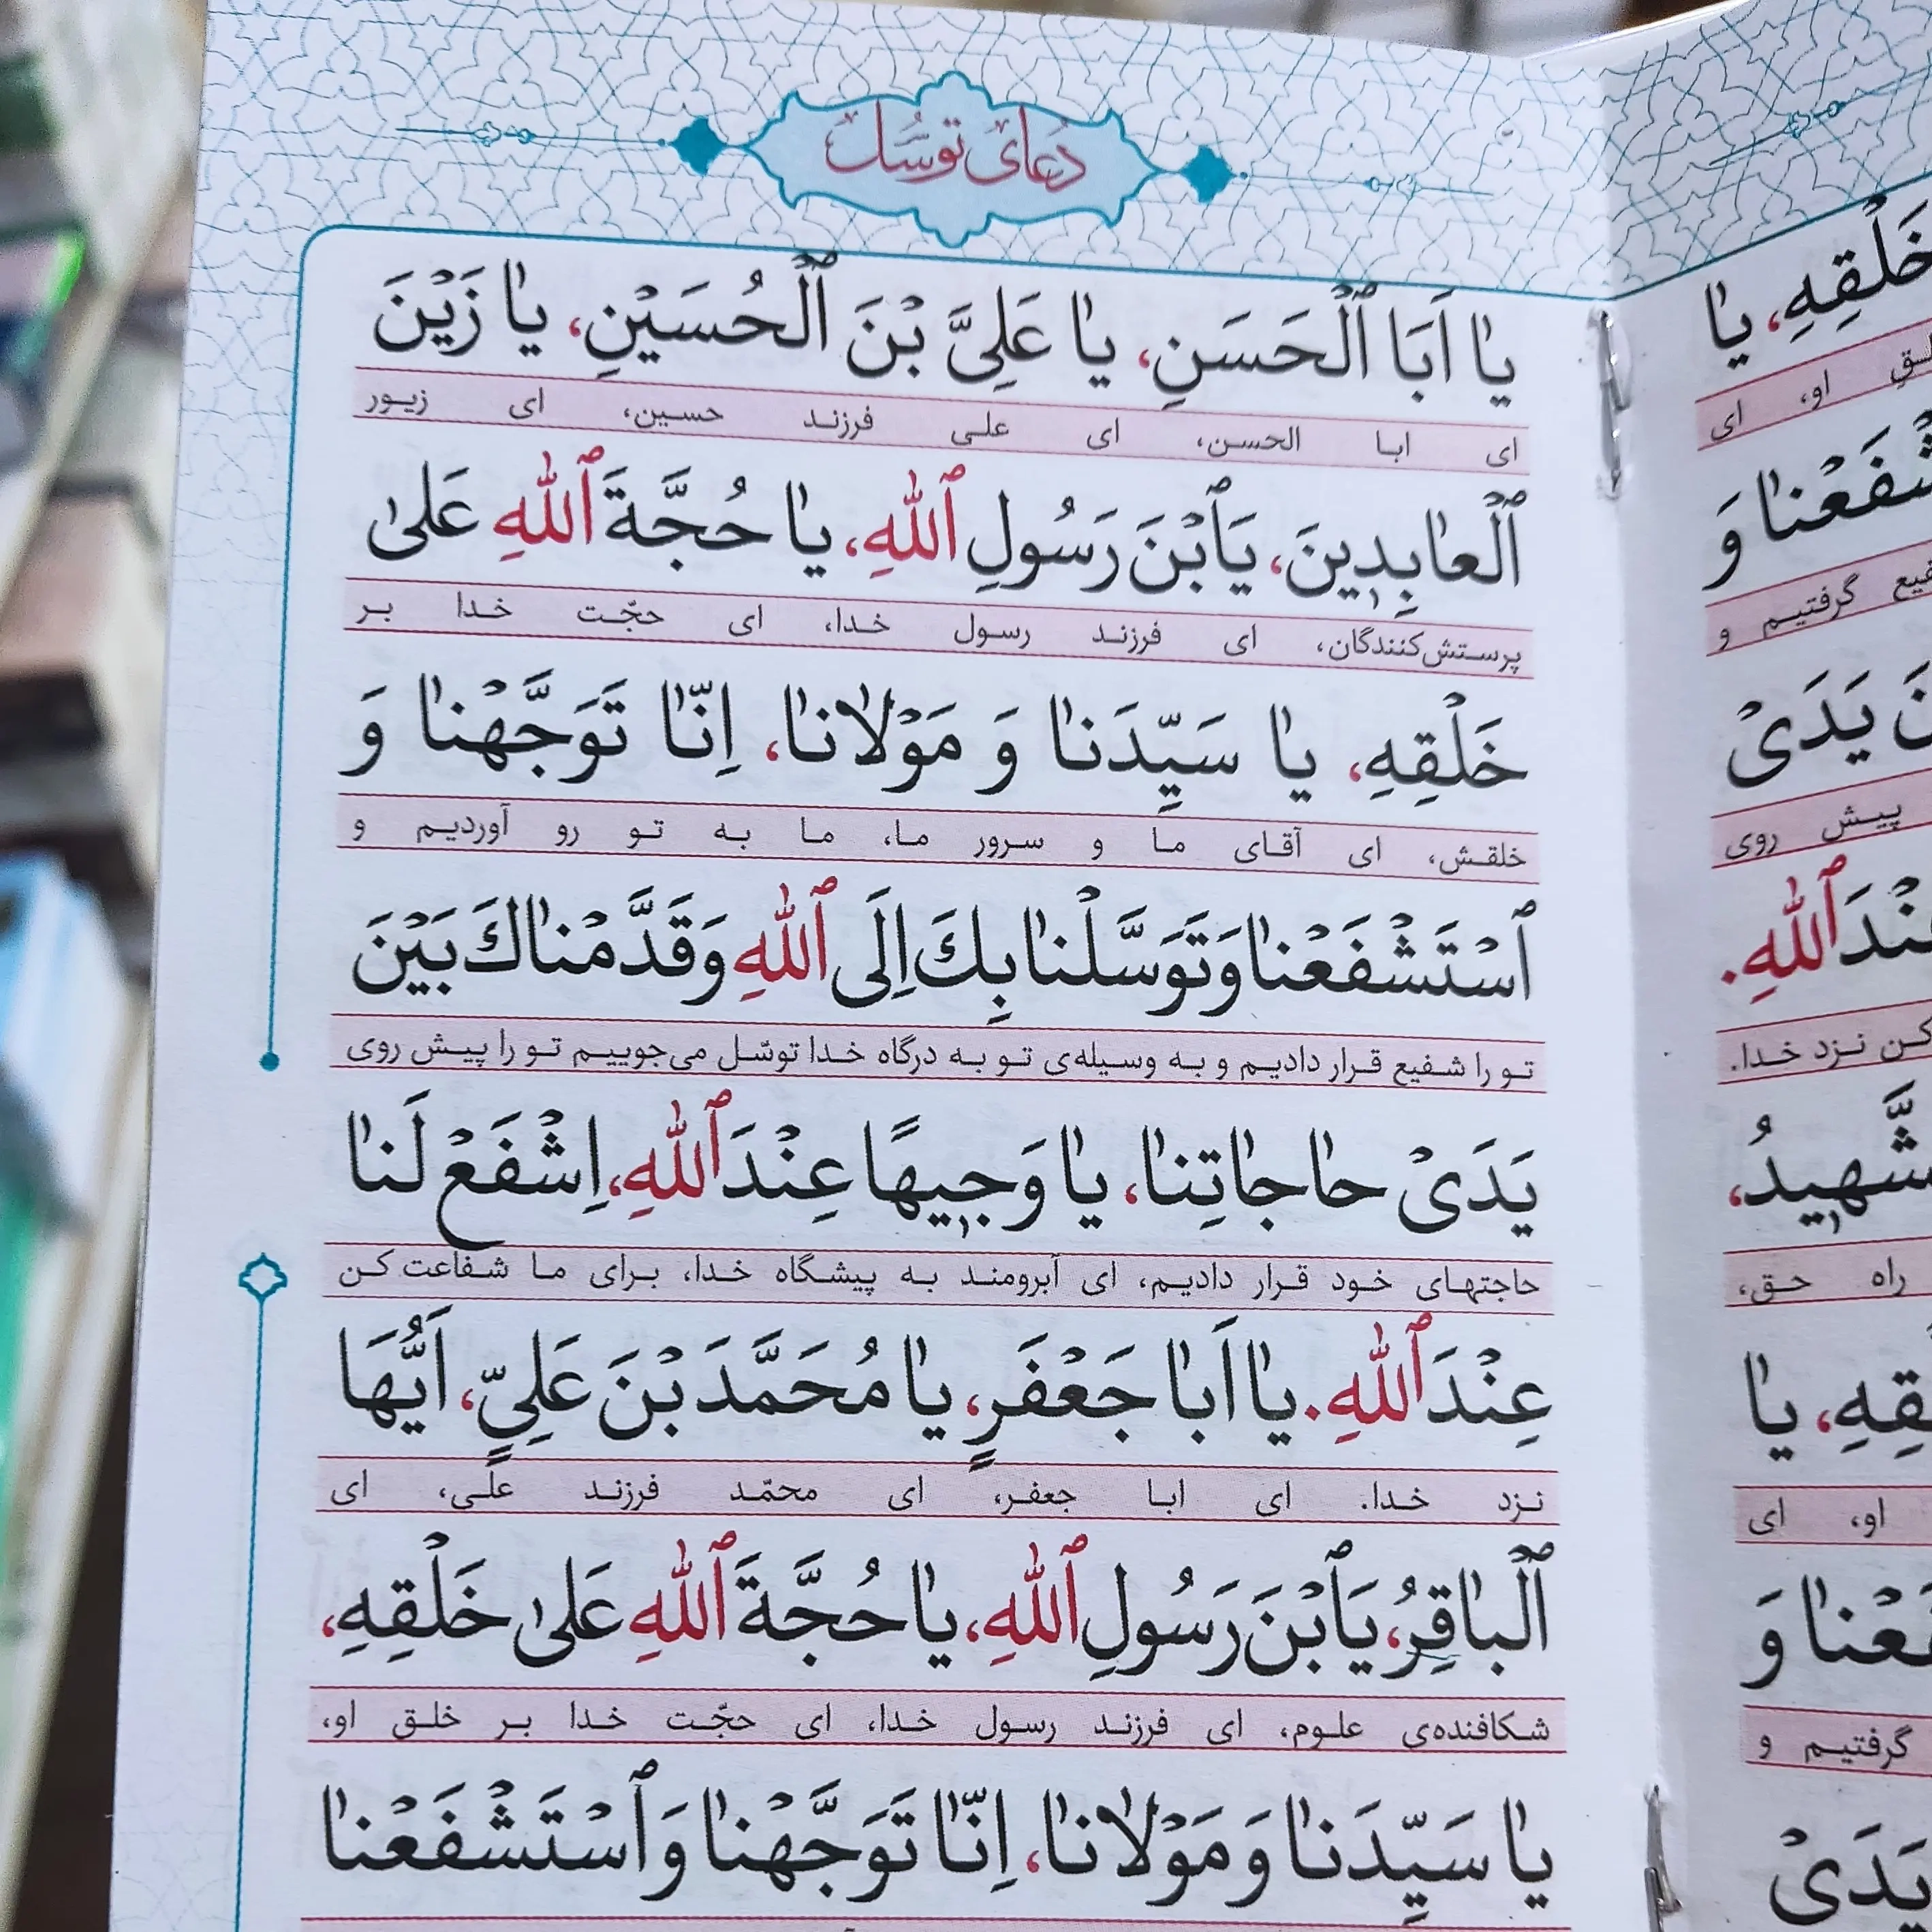 دعای توسل
يٰا اَبَا ٱلْحَسَنِ، يٰا عَلِىَّ بْنَ ٱلْحُسَيْنِ، يٰا زَيْنَ
ای ابا الحسن، ای علی فرزند حسین، ای زیور
ٱلْعٰابِدٖينَ، يَٱبْنَ رَسُولِ ٱللّٰهِ، يٰا حُجَّةَ ٱللّٰهِ عَلىٰ
پرستش‌کنندگان، ای فرزند رسول خدا، ای حجّت خدا بر
خَلْقِهِ، يٰا سَيِّدَنٰا وَ مَوْلٰانٰا، اِنّٰا تَوَجَّهْنٰا وَ
خلقش، ای آقای ما و سرور ما، ما به تو رو آوردیم و
ٱسْتَشْفَعْنٰا وَ تَوَسَّلْنٰا بِكَ اِلَى ٱللّٰهِ وَ قَدَّمْنٰاكَ بَيْنَ
تو را شفیع قرار دادیم و به وسیله‌ی تو به درگاه خدا توسّل می‌جوییم تو را پیش روی
يَدَىْ حٰاجٰاتِنٰا، يٰا وَجٖيهًا عِنْدَ ٱللّٰهِ، اِشْفَعْ لَنٰا
حاجتهای خود قرار دادیم، ای آبرومند به پیشگاه خدا، برای ما شفاعت کن
عِنْدَ ٱللّٰهِ. يٰا اَبٰا جَعْفَرٍ، يٰا مُحَمَّدَ بْنَ عَلِىٍّ، اَيُّهَا
نزد خدا. ای ابا جعفر، ای محمّد فرزند علی، ای
ٱلْبٰاقِرُ، يَٱبْنَ رَسُولِ ٱللّٰهِ، يٰا حُجَّةَ ٱللّٰهِ عَلىٰ خَلْقِهِ،
شکافنده‌ی علوم، ای فرزند رسول خدا، ای حجّت خدا بر خلق او،
يٰا سَيِّدَنٰا وَ مَوْلٰانٰا، اِنّٰا تَوَجَّهْنٰا وَ ٱسْتَشْفَعْنٰا
خَلْقِهِ، يٰا
او، ای
وَ
گرفتیم و
يَدَىْ
پیش روی
ٱللّٰهِ.
کن نزد خدا.
راه حق،
يٰا
او، ای
وَ
گرفتیم و
يَدَىْ